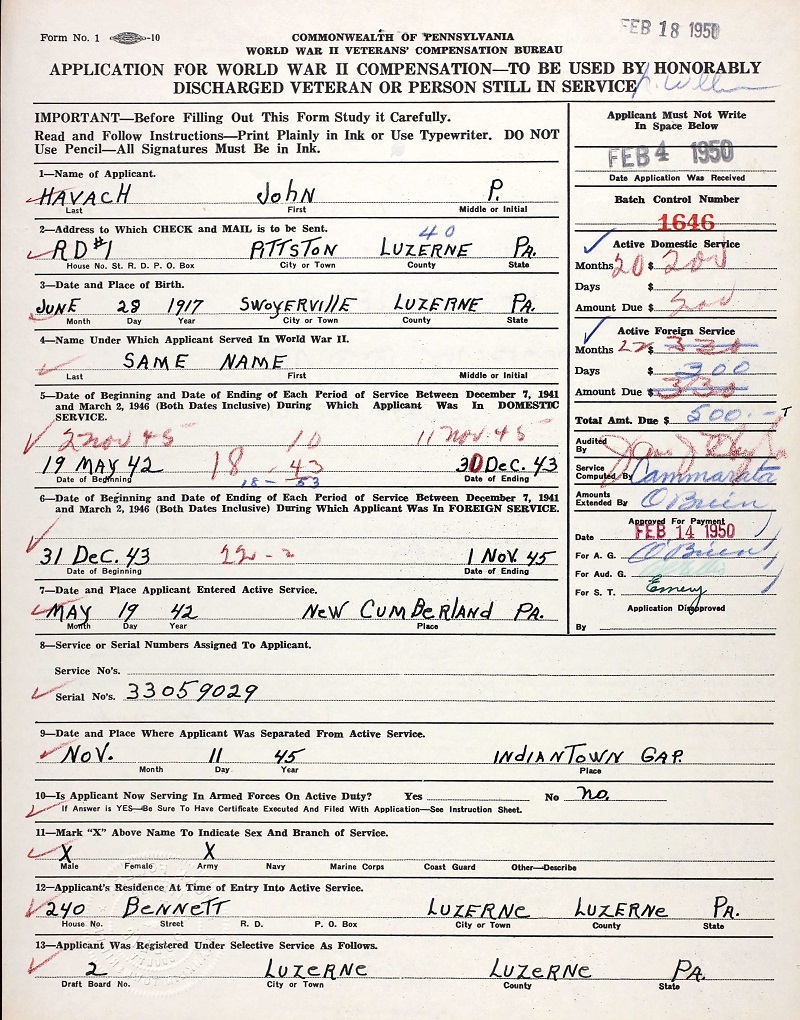 FEB 18 1950
Form No. 1 -10
COMMONWEALTH OF PENNSYLVANIA
WORLD WAR II VETERANS' COMPENSATION BUREAU
APPLICATION FOR WORLD WAR II COMPENSATION—TO BE USED BY HONORABLY
DISCHARGED VETERAN OR PERSON STILL IN SERVICE
IMPORTANT—Before Filling Out This Form Study it Carefully.
Read and Follow Instructions—Print Plainly in Ink or Use Typewriter. DO NOT
Use Pencil—All Signatures Must Be in Ink.
1—Name of Applicant.
HAVACH JOHN P.
Last First Middle or Initial
2—Address to Which CHECK and MAIL is to be Sent.
40
RD #1 PITTSTON LUZERNE PA.
House No. St. R. D. P. O. Box City or Town County State
3—Date and Place of Birth.
JUNE 28 1917 SWOYERVILLE LUZERNE PA.
Month Day Year City or Town County State
4—Name Under Which Applicant Served In World War II.
SAME NAME
Last First Middle or Initial
5—Date of Beginning and Date of Ending of Each Period of Service Between December 7, 1941
and March 2, 1946 (Both Dates Inclusive) During Which Applicant Was In DOMESTIC
SERVICE.
2 Nov 45 10 11 Nov. 45
19 MAY 42 18 - 43 30 DEC. 43
Date of Beginning 18 - 53 Date of Ending
6—Date of Beginning and Date of Ending of Each Period of Service Between December 7, 1941
and March 2, 1946 (Both Dates Inclusive) During Which Applicant Was In FOREIGN SERVICE.
31 DEC. 43 22 - 2 1 NOV. 45
Date of Beginning Date of Ending
7—Date and Place Applicant Entered Active Service.
MAY 19 42 NEW CUMBERLAND PA.
Month Day Year Place
8—Service or Serial Numbers Assigned To Applicant.
Service No's.
Serial No's. 33059029
9—Date and Place Where Applicant Was Separated From Active Service.
NOV. 11 45 INDIANTOWN GAP.
Month Day Year Place
10—Is Applicant Now Serving In Armed Forces On Active Duty? Yes No no.
If Answer is YES—Be Sure To Have Certificate Executed And Filed With Application—See Instruction Sheet.
11—Mark "X" Above Name To Indicate Sex and Branch of Service.
X X
Male Female Army Navy Marine Corps Coast Guard Other—Describe
12—Applicant's Residence At Time of Entry Into Active Service.
240 BENNETT LUZERNE LUZERNE PA.
House No. Street R. D. P. O. Box City or Town County State
13—Applicant Was Registered Under Selective Service As Follows.
2 LUZERNE LUZERNE PA.
Draft Board No. City or Town County State
Applicant Must Not Write
In Space Below
FEB 4 1950
Date Application Was Received
Batch Control Number
1646
Active Domestic Service
Months 20 $ 200
Days $
Amount Due $ 200
Active Foreign Service
Months 22 $ 330
Days $ 300
Amount Due $ 330
Total Amt. Due $ 500.- T
Audited
By
Service
Computed By Cammarata
Amounts
Extended By O'Brien
Approved For Payment
Date FEB 14 1950
For A. G. O'Brien
For Aud. G.
For S. T. Emery
Application Disapproved
By